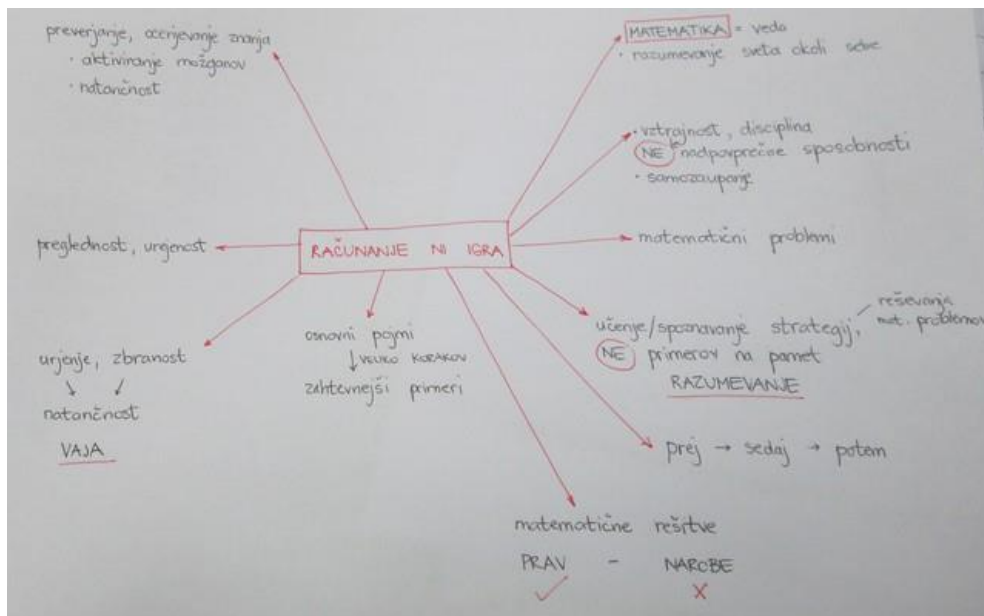 preverjanje, ocenjevanje znanja
· aktiviranje možganov
· natančnost
MATEMATIKA = veda
· razumevanje sveta okoli sebe
· vztrajnost, disciplina
NE nadpovprečne sposobnosti
· samozaupanje
preglednost, urejenost
RAČUNANJE NI IGRA
matematični problemi
urjenje, zbranost
natančnost
VAJA
osnovni pojmi
↓ VELIKO KORAKOV
zahtevnejši primeri
učenje/spoznavanje strategij,
reševanja
mat. problemov
NE primerov na pamet
RAZUMEVANJE
prej → sedaj → potem
matematične rešitve
PRAV - NAROBE
✓ X